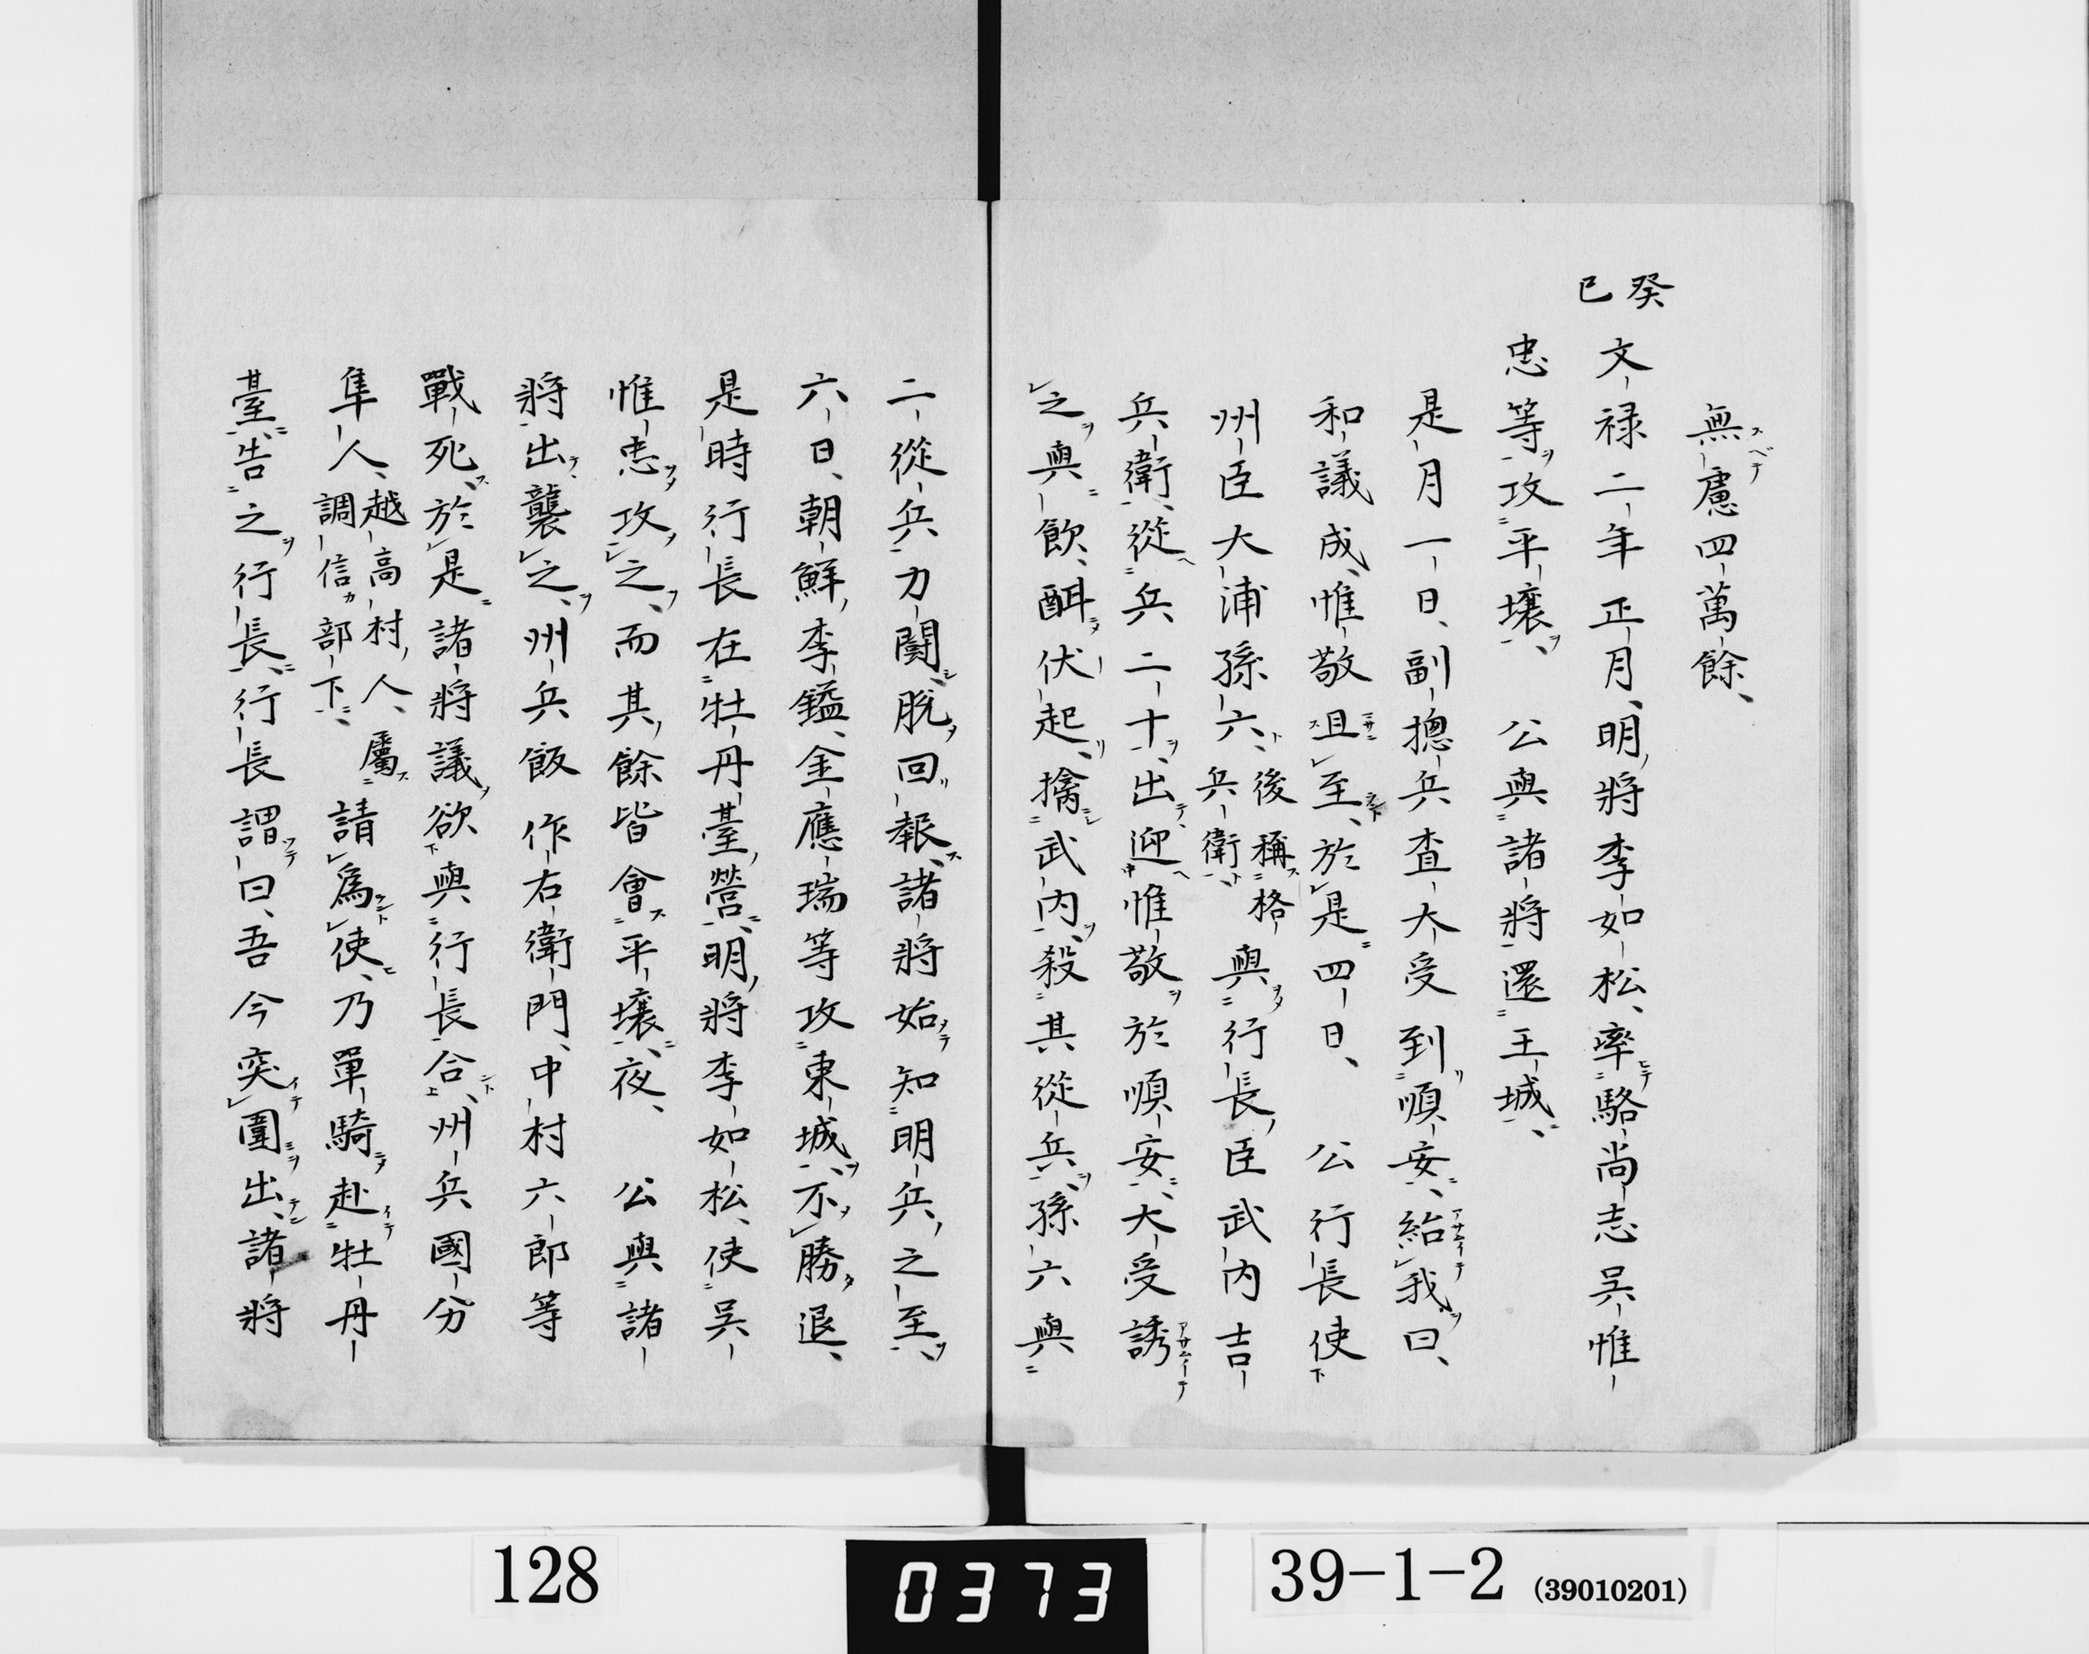 無慮四萬餘、
癸巳
文祿二年正月、明將李如松、率駱尚志吳惟
忠等攻平壤、公與諸將還王城、
是月一日、副摠兵査大受到順安、紿我曰、
和議成、惟敬且至、於是四日、公行長使
州臣大浦孫六、後稱格兵衛、與行長臣武内吉
兵衛、從兵二十、出迎惟敬於順安、大受誘
之與飲、酣伏起、擒武内、殺其從兵、孫六與
二從兵力鬪、脱回報、諸將始知明兵之至、
六日、朝鮮李鎰、金應瑞等攻東城、不勝退、
是時行長在牡丹臺營、明將李如松、使吳
惟忠攻之、而其餘皆會平壤、夜、公與諸
將出襲之、州兵飯作右衛門、中村六郎等
戰死、於是諸將議、欲與行長合、州兵國分
隼人、越高村人、屬調信部下、請爲使、乃單騎赴牡丹
臺、告之行長、行長謂曰、吾今突圍出、諸將
128
0373
39-1-2 (39010201)